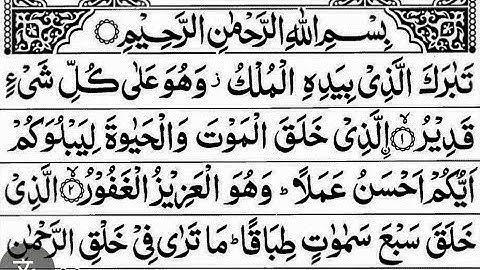 بِسْمِ اللّٰهِ الرَّحْمٰنِ الرَّحِيْمِ ○
تَبٰرَكَ الَّذِىْ بِيَدِهِ الْمُلْكُ ز وَهُوَ عَلٰى كُلِّ شَىْءٍ
قَدِيْرُ ۙ﴿۱﴾ اۨلَّذِىْ خَلَقَ الْمَوْتَ وَالْحَيٰوةَ لِيَبْلُوَكُمْ
اَيُّكُمْ اَحْسَنُ عَمَلًا ؕ وَهُوَ الْعَزِيْزُ الْغَفُوْرُ ۙ﴿۲﴾ الَّذِىْ
خَلَقَ سَبْعَ سَمٰوٰتٍ طِبَاقًا ؕ مَا تَرٰى فِىْ خَلْقِ الرَّحْمٰنِ